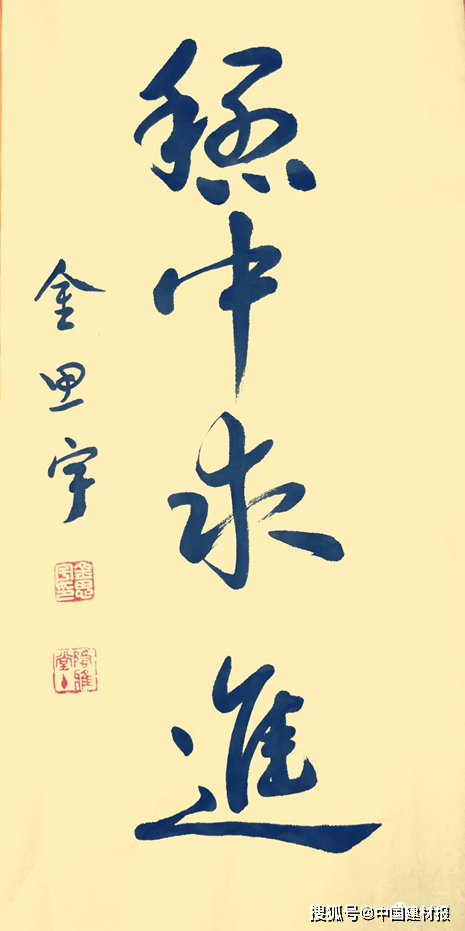 稳中求進
金思宇
搜狐号@中国建材报